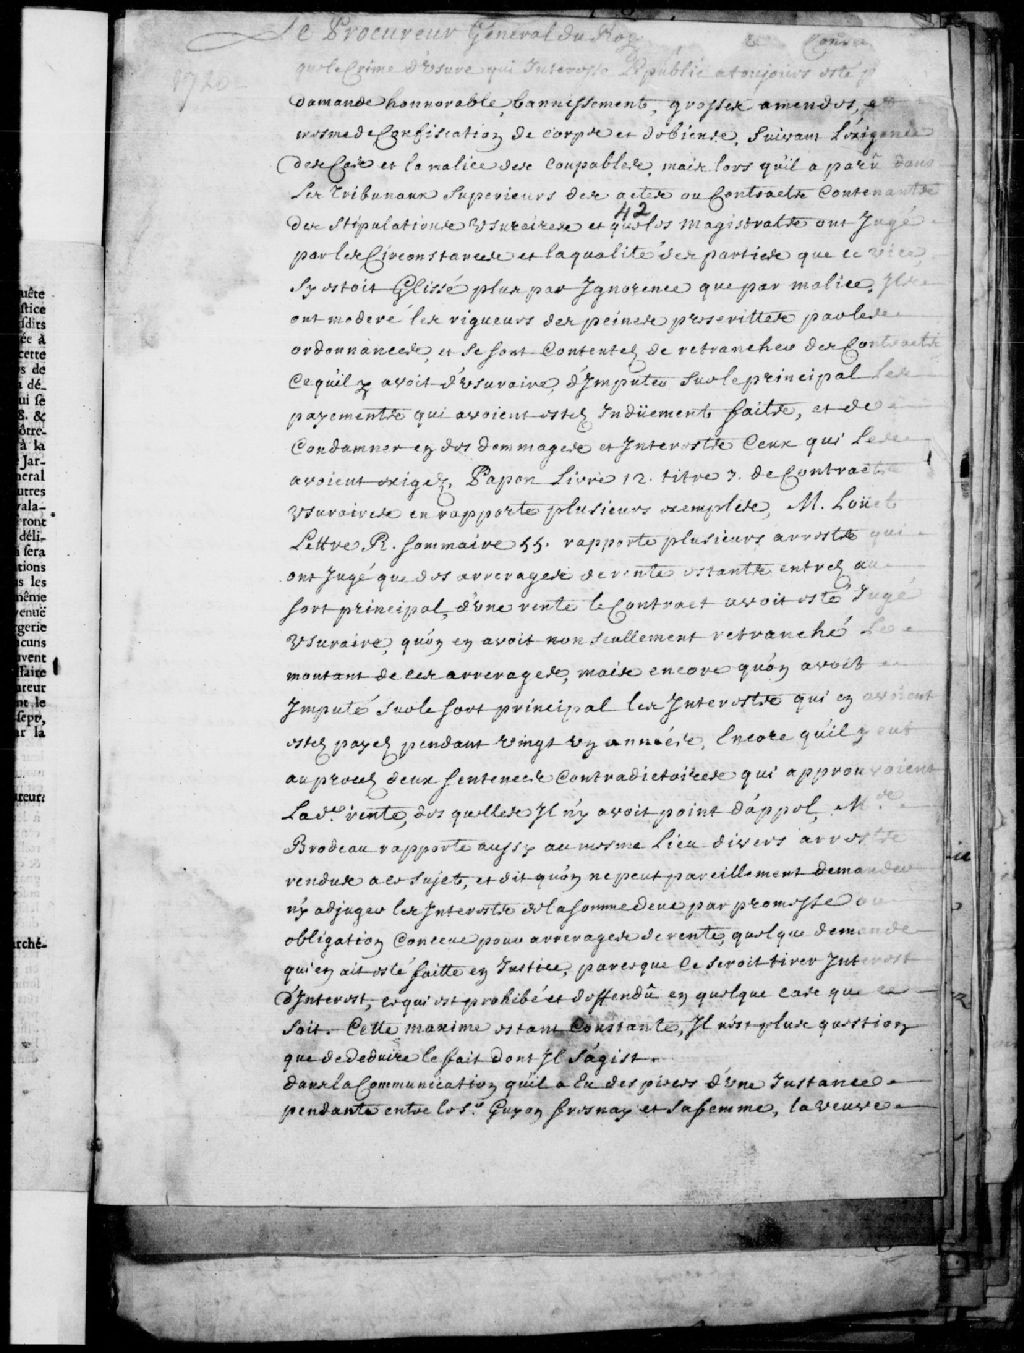 Le Procureur Général du Roy
1720
que le Crime d'usure qui Interesse Le public a toujours esté
damande honnorable, bannissement, grosses amendes, et
mesme de Confiscation de corps et de biens, Suivant L'exigence
des Cas et la malice des coupables, mais lors qu'il a parû dans
Les Tribunaux Superieurs des actes ou Contracts Contenants
42
des Stipulations Usuraires et que les magistrats ont Jugé
par les Circonstances et la qualité des parties que ce vice
s'y estoit Glissé plus par Ignorence que par malice, Ils
ont moderé les rigueurs des peines prescrittes par les
ordonnances, et se sont Contentez de retrancher des Contracts
Ce quil y avoit d'Usuraire, d'Imputer sur le principal les
payements qui avoient estez Indüement faits, et de
Condamner en des dommages et Interests Ceux qui Les
avoient exigez, Papon Livre 12. titre 3. de Contracts
Usuraires en rapporte plusieurs exemples, M. Loüet
Lettre R. Sommaire 55. rapporte plusieurs arrests qui
ont Jugé que des arrerages de rente estants entrez au
sort principal, d'une rente le Contract avoit esté Jugé
Usuraire, qu'on en avoit non seullement retranché Le
montant de ces arrerages, mais encore qu'on avoit
Imputé Sur le sort principal les Interests qui en avoient
estez payez pendant vingt un années, Encore qu'il y eut
au procez deux sentences Contradictoires qui approuvoient
Lad.e rente, des quelles Il n'y avoit point d'appel, M.re
Brodeau rapporte aussy au mesme Lieu divers arrests
rendus a ce Sujet, et dit qu'on ne peut pareillement demander
n'y adjuger les Interests de la somme deue par promesse ou
obligation Conceue pour arrerages de rente, quelque demande
qui en ait esté faitte en Justice, parce que Ce seroit tirer Interest
d'Interest, ce qui est prohibé et deffendû en quelque Case que ce
Soit. Cette maxime estant Constante, Il n'est plus question
que de deduire le fait dont Il s'agist.
dans la Communication qu'il a Eu des pieces d'Une Instance
pendante entre le S.r Guyon fresnay et sa femme, la veuve